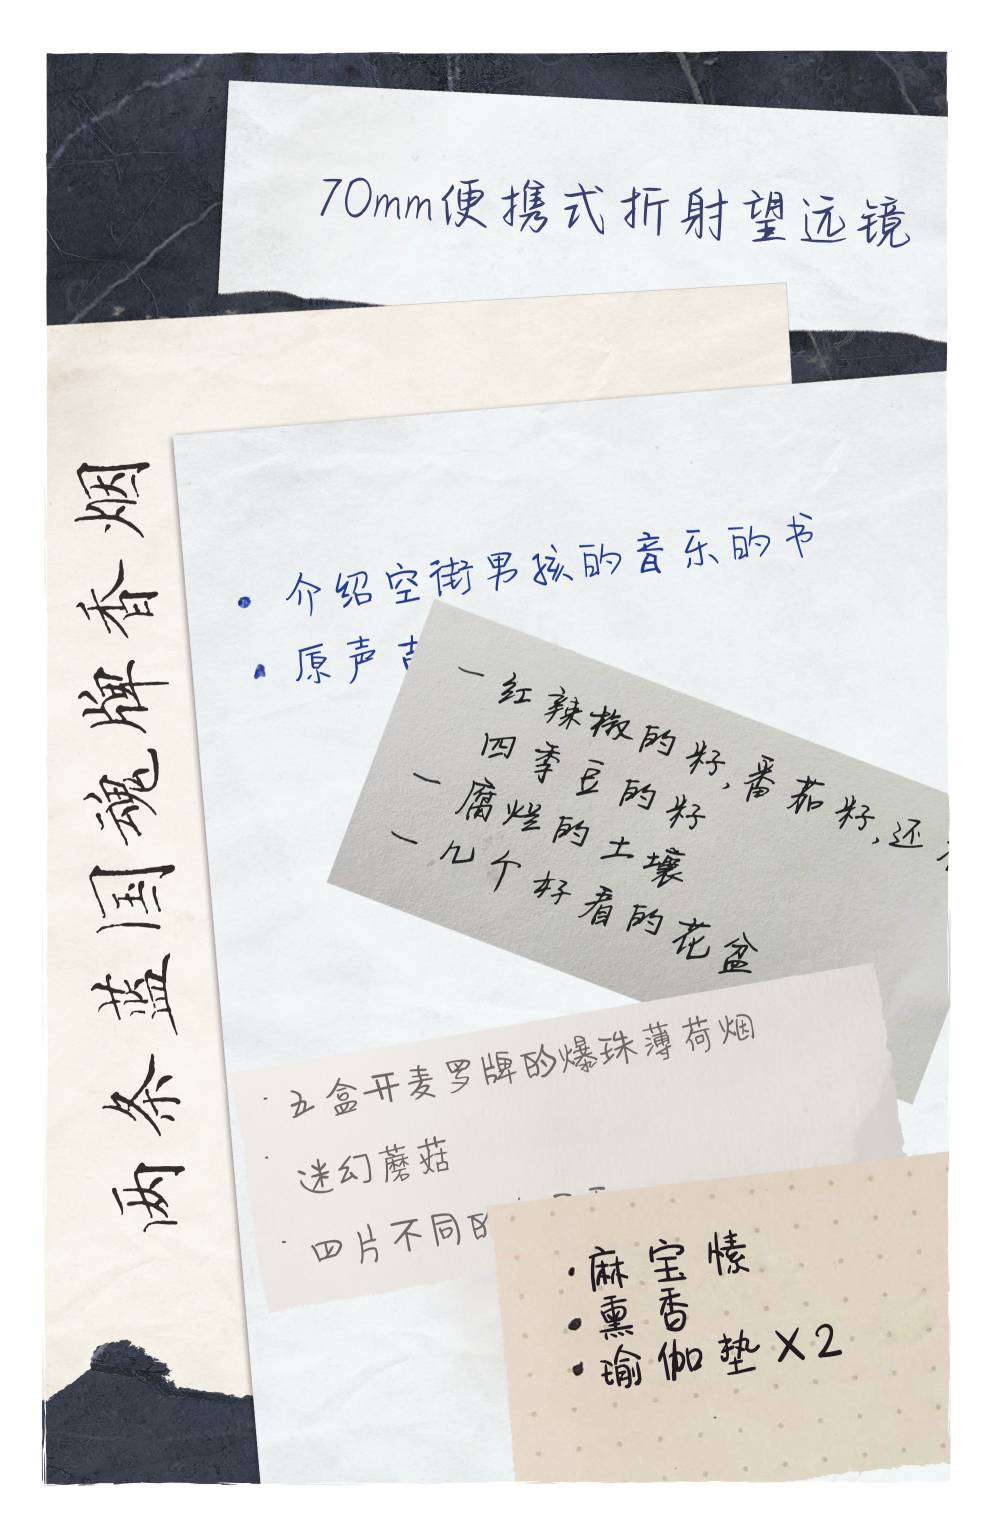 70mm便携式折射望远镜
两条蓝国魂牌香烟
• 介绍空街男孩的音乐的书
• 原声
一红辣椒的籽,番茄籽,还
四季豆的籽
一腐烂的土壤
一几个好看的花盆
· 五盒开麦罗牌的爆珠薄荷烟
· 迷幻蘑菇
· 四片不同的
• 麻宝愫
• 熏香
• 瑜伽垫X2